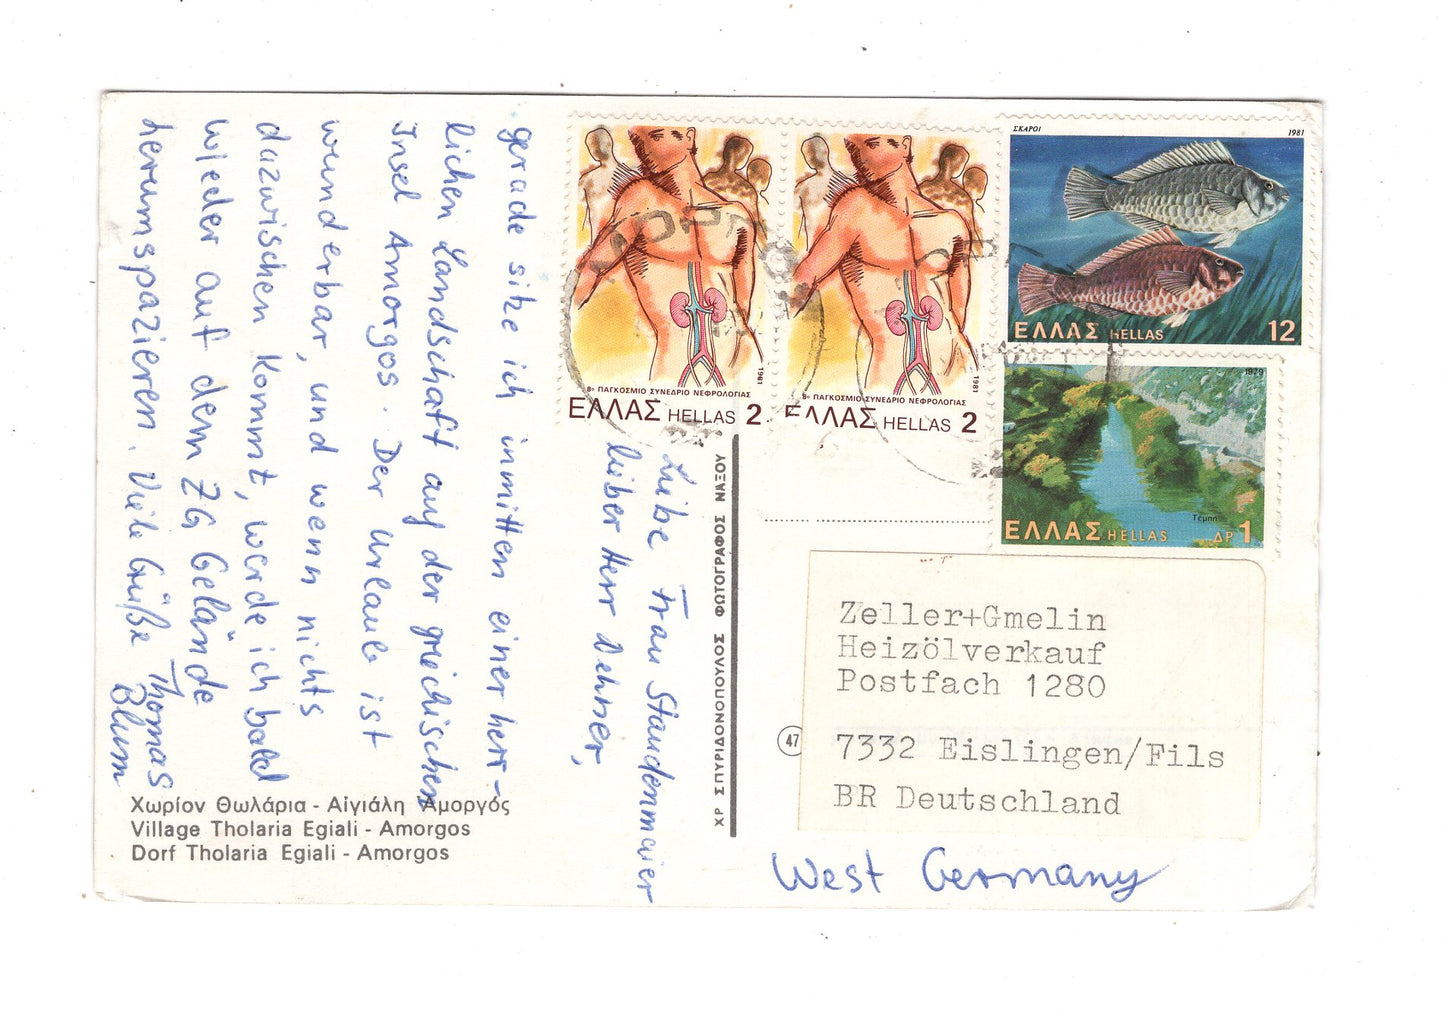 Liebe Frau Staudenmaier
lieber Herr Dehner,
gerade sitze ich inmitten einer herr-
lichen Landschaft auf der griechischen
Insel Amorgos. Der Urlaub ist
wunderbar, und wenn nichts
dazwischen kommt, werde ich bald
wieder auf dem ZG Gelände
herumspazieren. Viele Grüße Thomas
Blum
Χωρίον Θωλάρια - Αἰγιάλη Ἀμοργός
Village Tholaria Egiali - Amorgos
Dorf Tholaria Egiali - Amorgos
ΧΡ ΣΠΥΡΙΔΟΝΟΠΟΥΛΟΣ ΦΩΤΟΓΡΑΦΟΣ ΝΑΞΟΥ
1981
8ο ΠΑΓΚΟΣΜΙΟ ΣΥΝΕΔΡΙΟ ΝΕΦΡΟΛΟΓΙΑΣ
ΕΛΛΑΣ HELLAS 2
1981
8ο ΠΑΓΚΟΣΜΙΟ ΣΥΝΕΔΡΙΟ ΝΕΦΡΟΛΟΓΙΑΣ
ΕΛΛΑΣ HELLAS 2
ΣΚΑΡΟΙ 1981
ΕΛΛΑΣ HELLAS 12
1979
Τέμπη
ΕΛΛΑΣ HELLAS ΔΡ 1
Zeller+Gmelin
Heizölverkauf
Postfach 1280
47
7332 Eislingen/Fils
BR Deutschland
West Germany